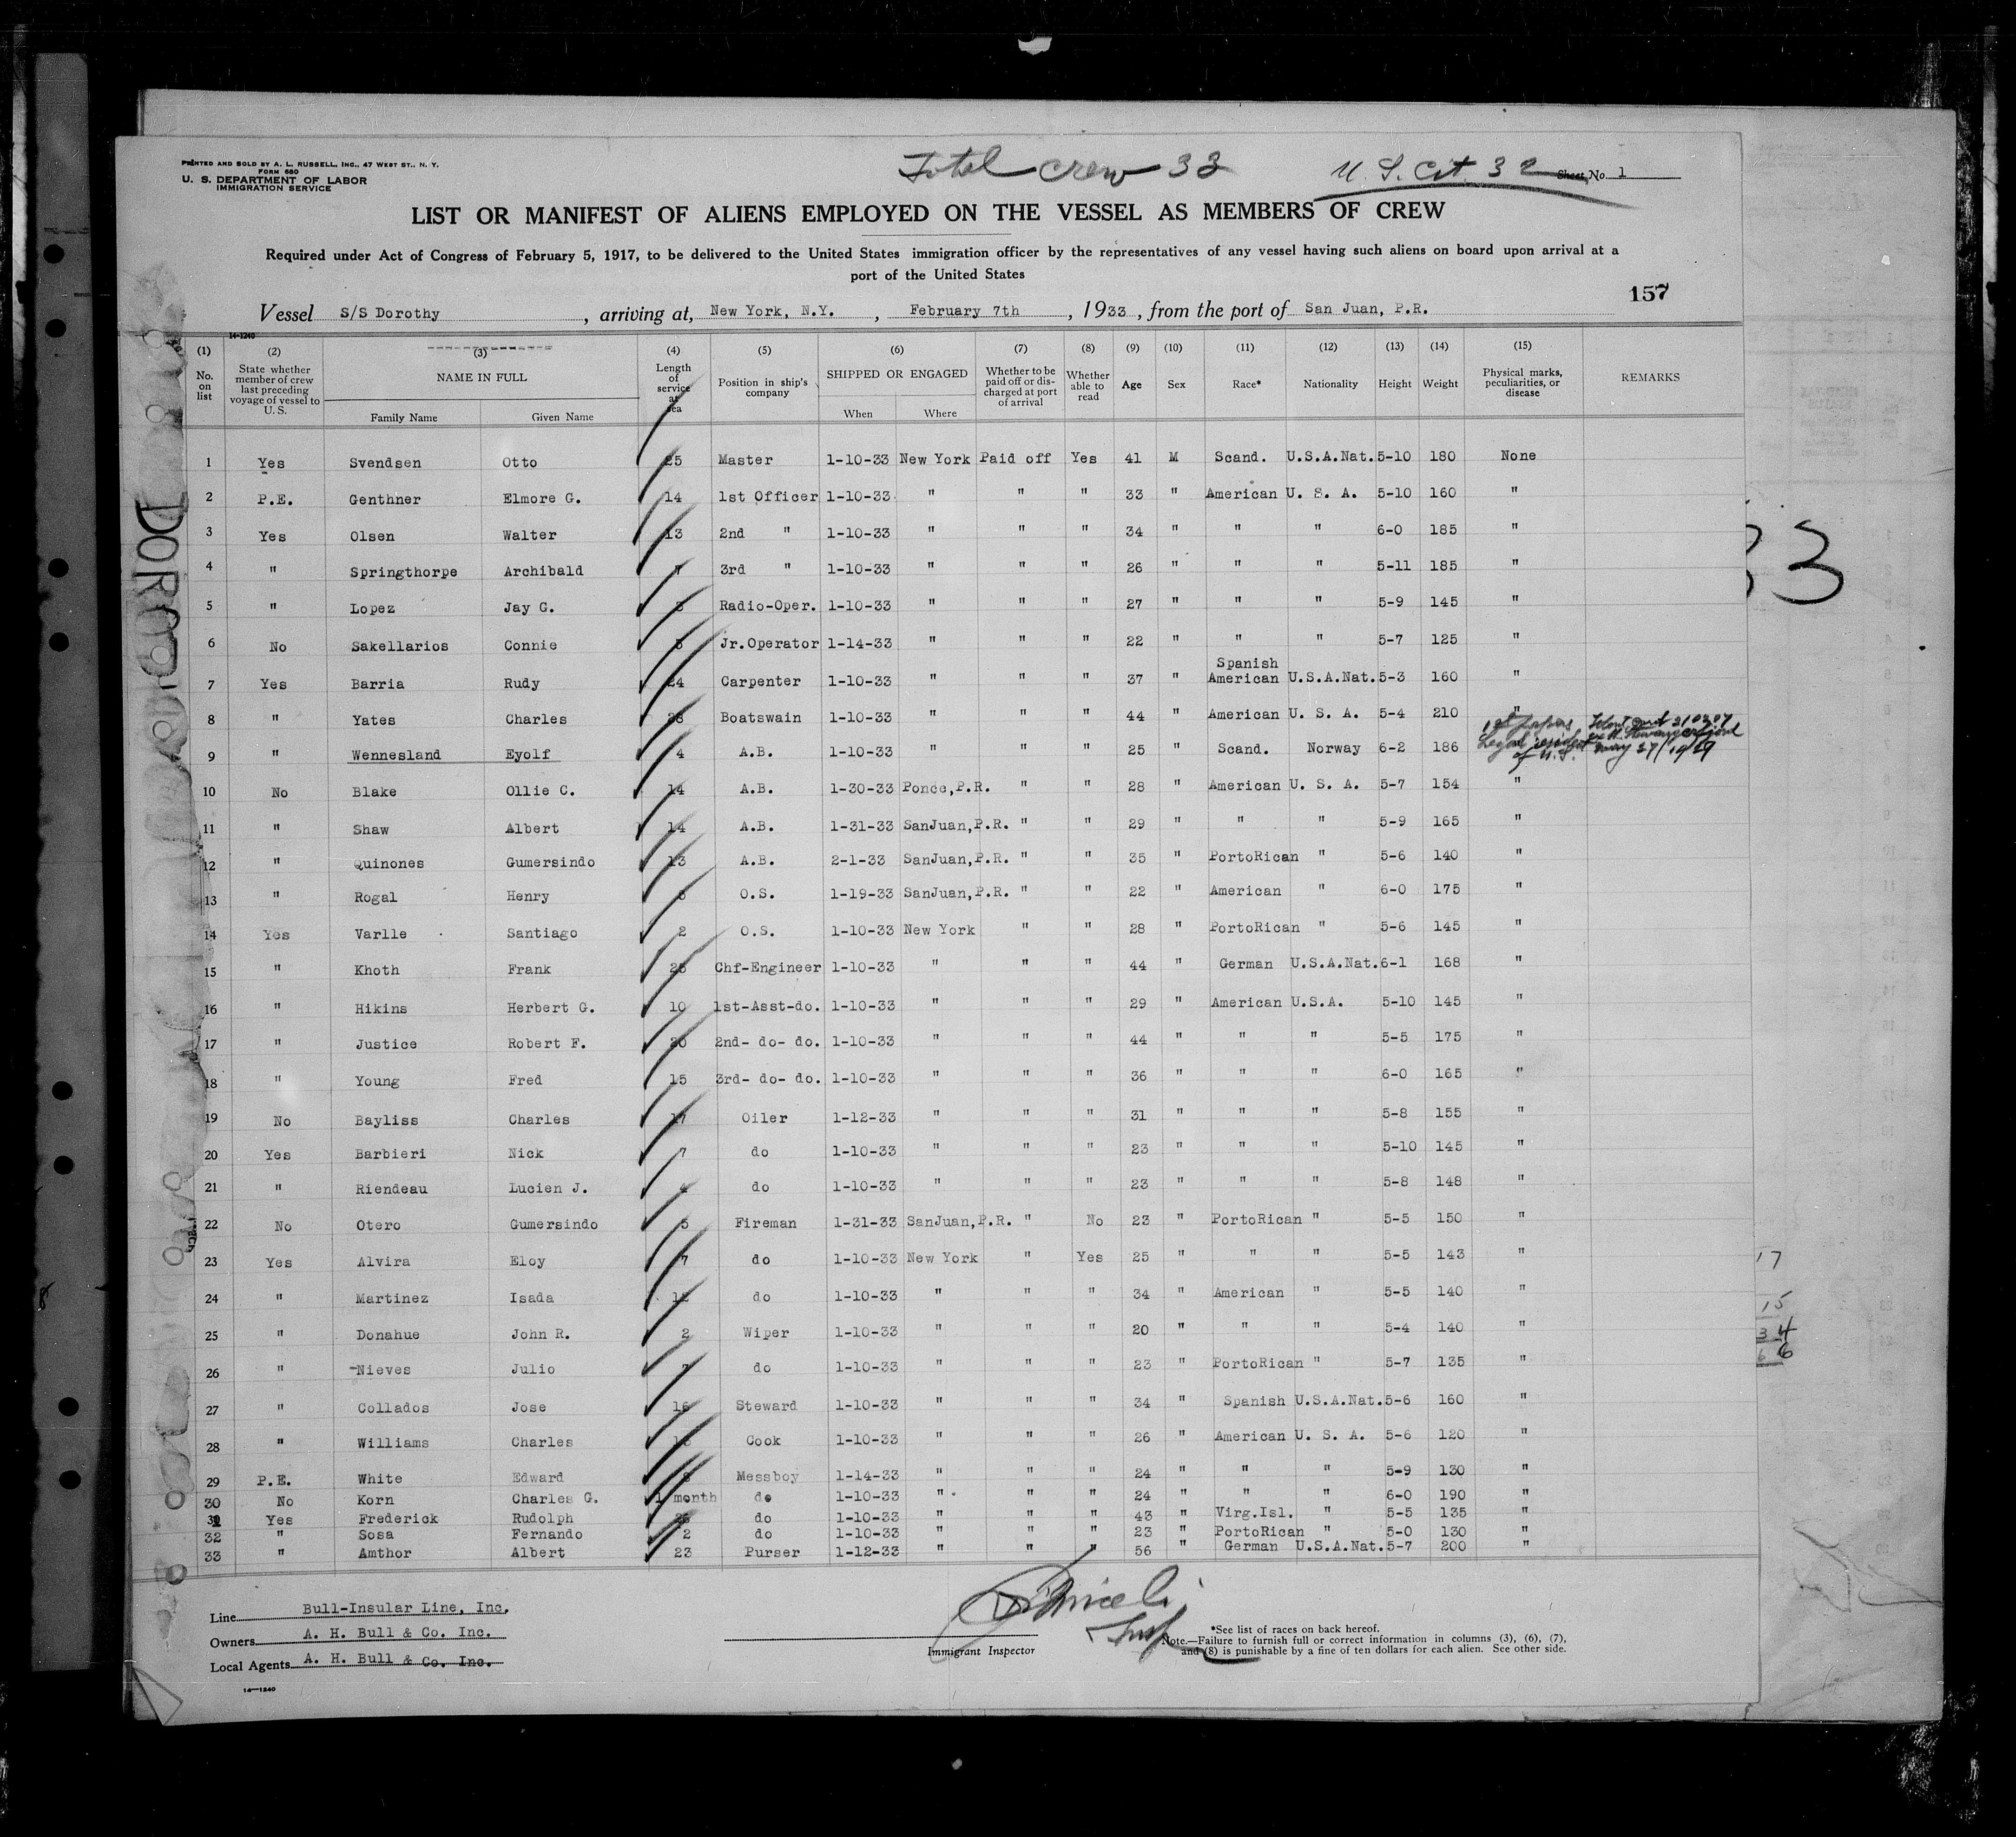 PRINTED AND SOLD BY A. L. RUSSELL, INC., 47 WEST ST., N. Y.
FORM 680
U. S. DEPARTMENT OF LABOR
IMMIGRATION SERVICE
Total Crew 33
U. S. Cit. 32
Sheet No. 1
LIST OR MANIFEST OF ALIENS EMPLOYED ON THE VESSEL AS MEMBERS OF CREW
Required under Act of Congress of February 5, 1917, to be delivered to the United States immigration officer by the representatives of any vessel having such aliens on board upon arrival at a
port of the United States
157
Vessel S/S Dorothy, arriving at, New York, N.Y., February 7th, 1933, from the port of San Juan, P.R.
14-1240
(1) No. on list (2) State whether member of crew last preceding voyage of vessel to U. S. (3) NAME IN FULL Family Name Given Name (4) Length of service at sea (5) Position in ship's company (6) SHIPPED OR ENGAGED When Where (7) Whether to be paid off or discharged at port of arrival (8) Whether able to read (9) Age (10) Sex (11) Race* (12) Nationality (13) Height (14) Weight (15) Physical marks, peculiarities, or disease REMARKS
1 Yes Svendsen Otto 25 Master 1-10-33 New York Paid off Yes 41 M Scand. U.S.A.Nat. 5-10 180 None
2 P.E. Genthner Elmore G. 14 1st Officer 1-10-33 " " " 33 " American U. S. A. 5-10 160 "
3 Yes Olsen Walter 13 2nd " 1-10-33 " " " 34 " " " 6-0 185 "
4 " Springthorpe Archibald 7 3rd " 1-10-33 " " " 26 " " " 5-11 185 "
5 " Lopez Jay G. Radio-Oper. 1-10-33 " " " 27 " " " 5-9 145 "
6 No Sakellarios Connie Jr.Operator 1-14-33 " " " 22 " " " 5-7 125 "
7 Yes Barria Rudy 24 Carpenter 1-10-33 " " " 37 " Spanish American U.S.A.Nat. 5-3 160 "
8 " Yates Charles Boatswain 1-10-33 " " " 44 " American U. S. A. 5-4 210 "
9 " Wennesland Eyolf 4 A.B. 1-10-33 " " " 25 " Scand. Norway 6-2 186 1st papers Legal resident of U.S. May 27/1927
10 No Blake Ollie C. 14 A.B. 1-30-33 Ponce,P.R. " " 28 " American U. S. A. 5-7 154 "
11 " Shaw Albert 14 A.B. 1-31-33 SanJuan,P.R. " " 29 " " " 5-9 165 "
12 " Quinones Gumersindo 13 A.B. 2-1-33 SanJuan,P.R. " " 35 " PortoRican " 5-6 140 "
13 " Rogal Henry O.S. 1-19-33 SanJuan,P.R. " " 22 " American " 6-0 175 "
14 Yes Varlle Santiago 2 O.S. 1-10-33 New York " " 28 " PortoRican " 5-6 145 "
15 " Khoth Frank 25 Chf-Engineer 1-10-33 " " " 44 " German U.S.A.Nat. 6-1 168 "
16 " Hikins Herbert G. 10 1st-Asst-do. 1-10-33 " " " 29 " American U.S.A. 5-10 145 "
17 " Justice Robert F. 20 2nd- do- do. 1-10-33 " " " 44 " " " 5-5 175 "
18 " Young Fred 15 3rd- do- do. 1-10-33 " " " 36 " " " 6-0 165 "
19 No Bayliss Charles 17 Oiler 1-12-33 " " " 31 " " " 5-8 155 "
20 Yes Barbieri Nick 7 do 1-10-33 " " " 23 " " " 5-10 145 "
21 " Riendeau Lucien J. 4 do 1-10-33 " " " 23 " " " 5-8 148 "
22 No Otero Gumersindo 5 Fireman 1-31-33 SanJuan,P.R. " No 23 " PortoRican " 5-5 150 "
23 Yes Alvira Eloy 7 do 1-10-33 New York " Yes 25 " " " 5-5 143 "
24 " Martinez Isada 12 do 1-10-33 " " " 34 " American " 5-5 140 "
25 " Donahue John R. 2 Wiper 1-10-33 " " " 20 " " " 5-4 140 "
26 " Nieves Julio 7 do 1-10-33 " " " 23 " PortoRican " 5-7 135 "
27 " Collados Jose 16 Steward 1-10-33 " " " 34 " Spanish U.S.A.Nat. 5-6 160 "
28 " Williams Charles Cook 1-10-33 " " " 26 " American U. S. A. 5-6 120 "
29 P.E. White Edward Messboy 1-14-33 " " " 24 " " " 5-9 130 "
30 No Korn Charles G. 1 month do 1-10-33 " " " 24 " " " 6-0 190 "
31 Yes Frederick Rudolph do 1-10-33 " " " 43 " Virg.Isl. " 5-5 135 "
32 " Sosa Fernando 2 do 1-10-33 " " " 23 " PortoRican " 5-0 130 "
33 " Amthor Albert 23 Purser 1-12-33 " " " 56 " German U.S.A.Nat. 5-7 200 "
DOROTHY
33
17
15
34
66
Line Bull-Insular Line, Inc.
Owners A. H. Bull & Co. Inc.
Local Agents A. H. Bull & Co. Inc.
Insp
Immigrant Inspector
*See list of races on back hereof.
Note.—Failure to furnish full or correct information in columns (3), (6), (7),
and (8) is punishable by a fine of ten dollars for each alien. See other side.
14—1240